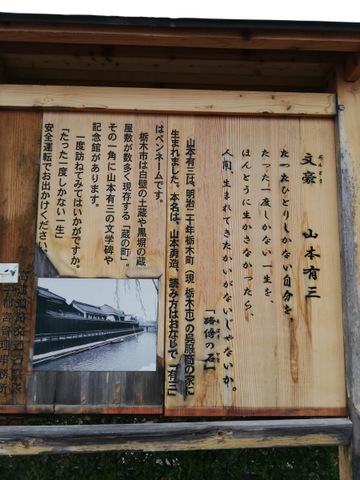 文豪 山本有三
たったひとりしかない自分を、
たった一度しかない一生を、
ほんとうに生かさなかったら、
人間、生まれてきたかいがないじゃないか。
「路傍の石」
山本有三は、明治二十年栃木町(現 栃木市)の呉服商の家に
生まれました。本名は、山本勇造、読み方はおなじで「有三」
はペンネームです。
栃木市は白壁の土蔵や黒塀の蔵
屋敷が数多く現存する「蔵の町」。
その一角に山本有三の文学碑や
記念館があります。
一度訪ねてみてはいかがですか。
「たった一度しかない一生」
安全運転でお出かけください。